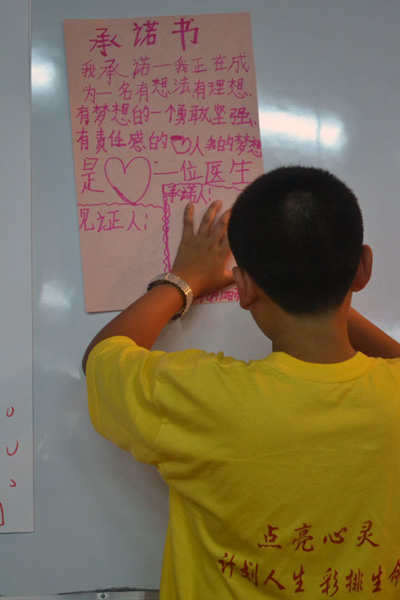 承诺书
我承诺一我正在成
为一名有想法,有理想,
有梦想的一个勇敢坚强、
有责任感的人我的梦想
是一位医生
承诺人:
见证人:
点亮心灵
计划人生 彩排生命